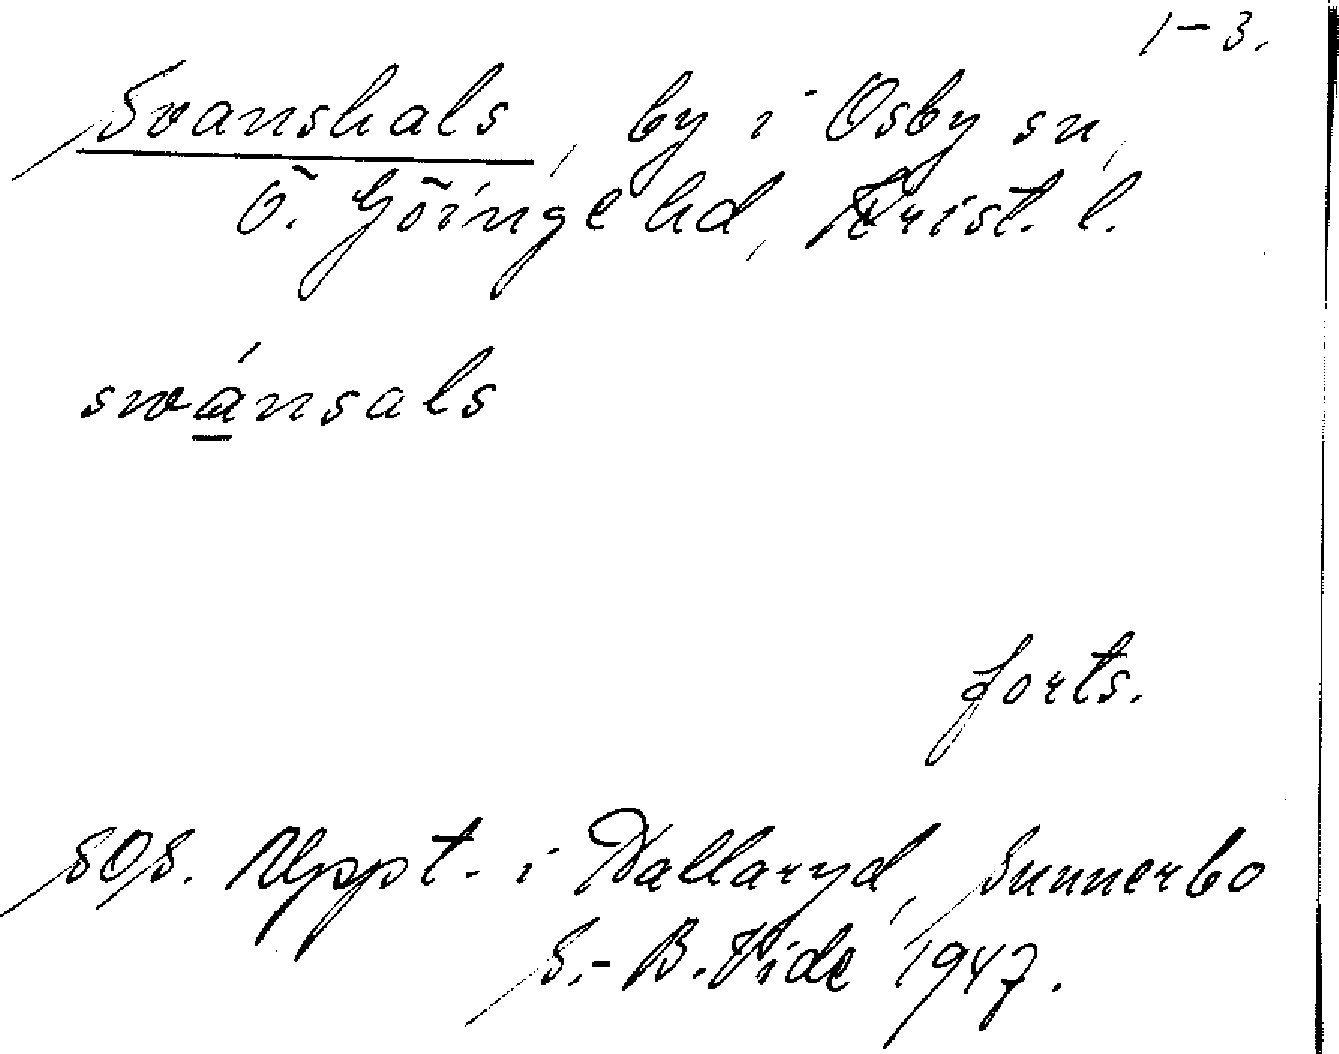 1-3.
Svanshals, by i Osby sn,
Ö. Göinge hd, Krist. l.
swánsals
forts.
SOS. Uppt. i Hallaryd, Sunnerbo
S.-B. Vide 1947.